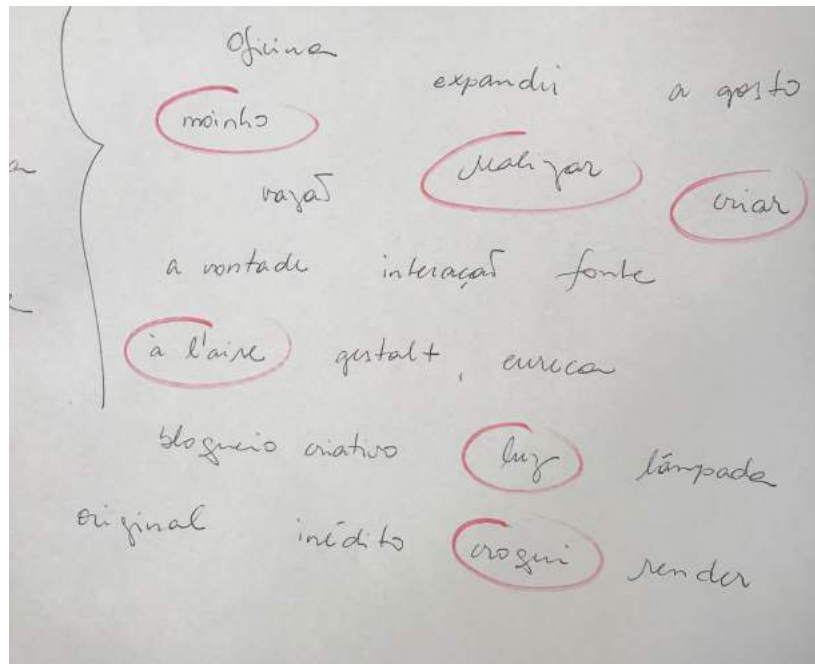 Oficina
expandir a gosto
moinho
realizar
vazão criar
a vontade interação fonte
à l'aise gestalt, eureca
bloqueio criativo luz lâmpada
original inédito croqui render